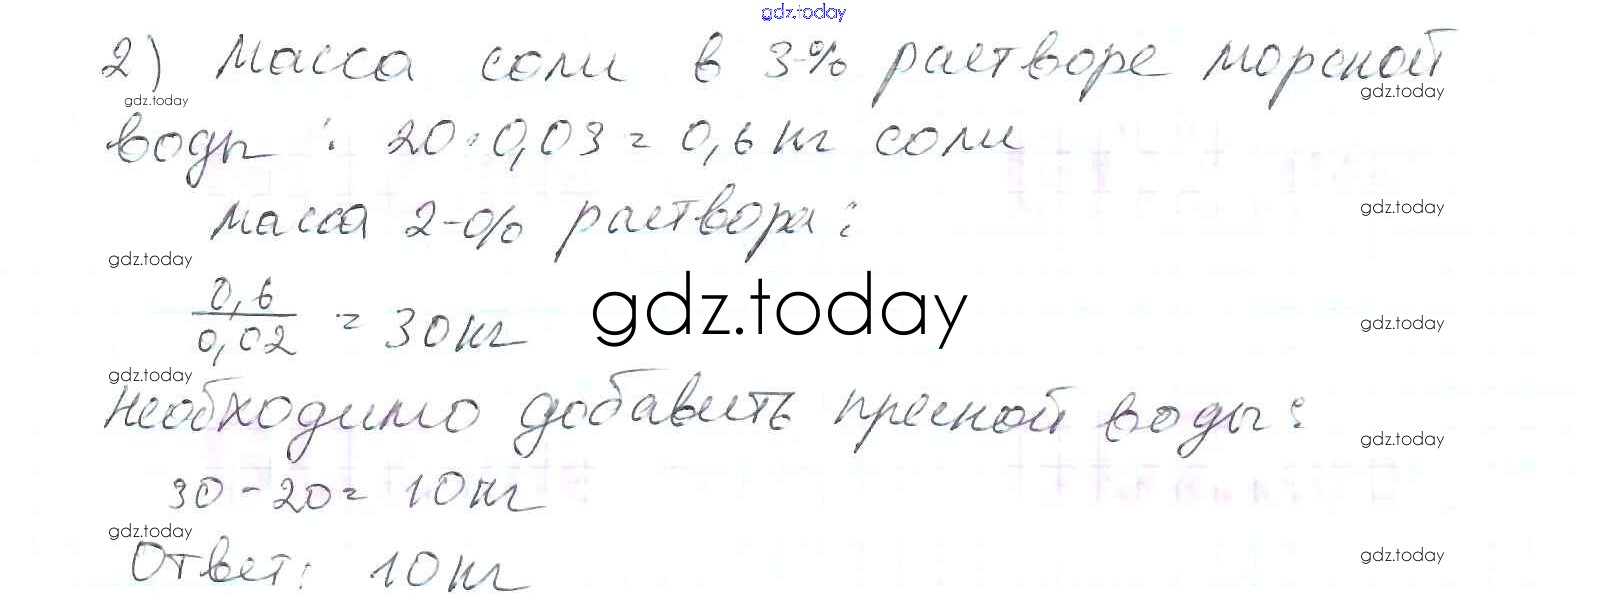 gdz.today
2) Масса соли в 3-% растворе морской
gdz.today
gdz.today
воды : 20·0,03 = 0,6 кг соли
масса 2-% раствора:
gdz.today
gdz.today
0,6
0,02
= 30 кг
gdz.today
gdz.today
gdz.today
Необходимо добавить пресной воды:
gdz.today
30 - 20 = 10 кг
gdz.today
Ответ: 10 кг
gdz.today